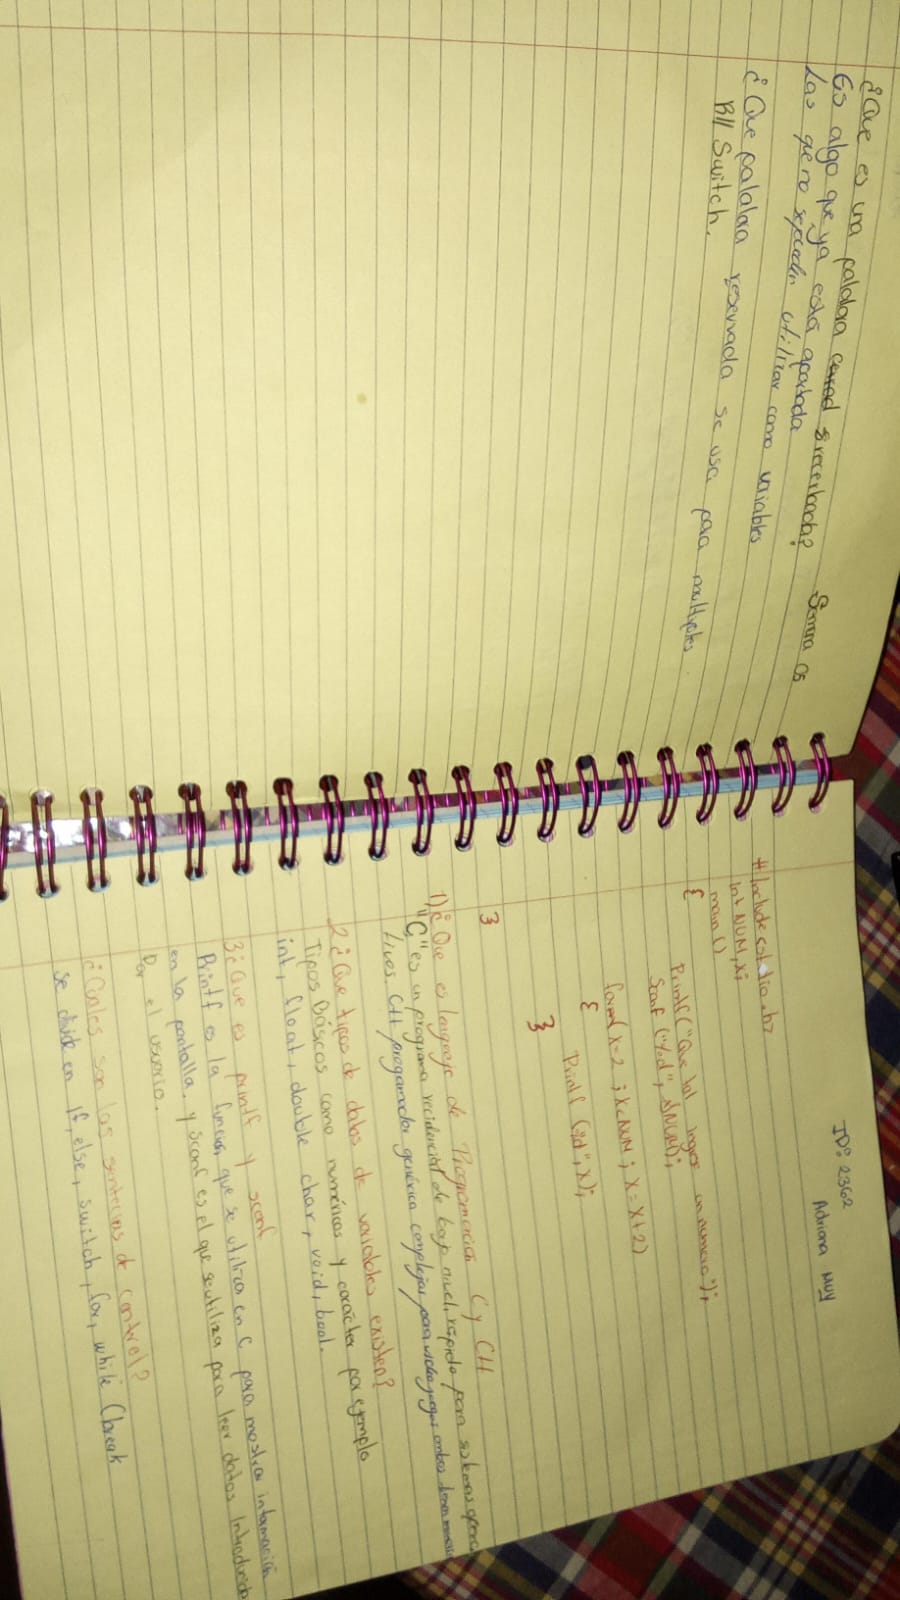 ¿Que es una palabra reservada? Semana 05
Es algo que ya está apartada
Las que no se pueden utilizar como variables
¿Que palabra reservada se usa para multiples
R// Switch.
ID: 2362
Adriana Muy
#Include <stdio.h>
int NUM, x;
main ()
{
Printf ("Que tal ingrese un numero");
Scanf ("%d", &NUM);
for (x=2 ; x<NUM ; x = x+2)
{
Printf ("%d", x);
}
}
1) ¿Que es lenguaje de Programación C y C++
"C" es un programa de bajo nivel, rapido para sistemas
C++ programador generica complejas para videojuegos ambos
2 ¿Que tipos de datos de variables existen?
Tipos Básicos como numéricos y carácter por ejemplo
int, float, double char, void, bool.
3¿ Que es printf y scanf
Printf es la función que se utiliza en C para mostrar información
en la pantalla. y scanf es el que se utiliza para leer datos Introducido
Por el usuario.
¿Cuáles son las sentencias de control?
Se divide en If, else, switch, for, while (break